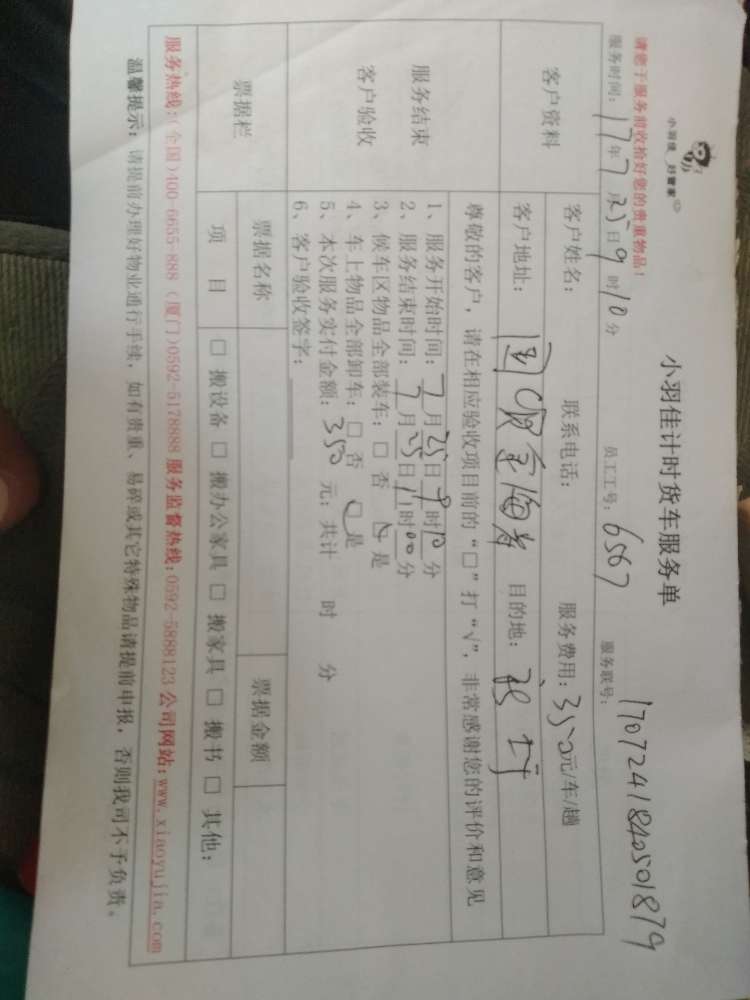 小羽佳 好管家
小羽佳计时货车服务单
请您于服务前收拾好您的贵重物品！
服务时间：17年7月25日9时10分 员工工号：6567 服务联号：1707241840501879
客户资料
客户姓名： 联系电话： 服务费用：350元/车/趟
客户地址： 目的地：
服务结束
客户验收
尊敬的客户，请在相应验收项目前的“□”打“√”，非常感谢您的评价和意见
1、服务开始时间：7月25日9时10分
2、服务结束时间：7月25日11时00分
3、候车区物品全部装车：□ 否 □ 是
4、车上物品全部卸车：□ 否 □ 是
5、本次服务实付金额：350 元；共计 时 分
6、客户验收签字：
票据栏
票据名称 票据金额
项 目 □ 搬设备 □ 搬办公家具 □ 搬家具 □ 搬书 □ 其他：
服务热线：(全国)400-6655-888 (厦门)0592-5178888 服务监督热线：0592-5888123 公司网站：www.xiaoyujia.com
温馨提示：请提前办理好物业通行手续，如有贵重、易碎或其它特殊物品请提前申报，否则我司不予负责。